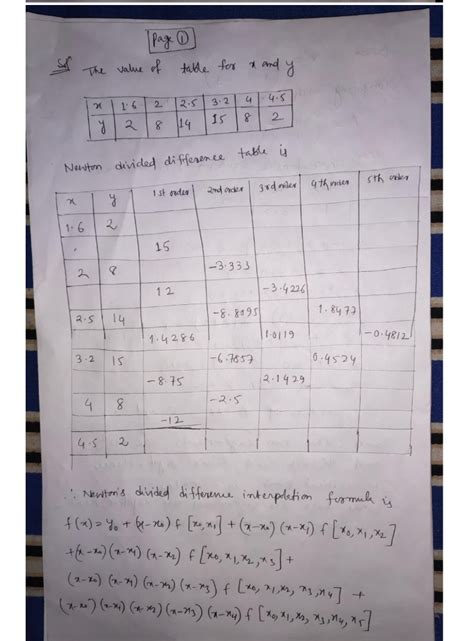 Page ①
Sol The value of table for x and y
x 1.6 2 2.5 3.2 4 4.5
y 2 8 14 15 8 2
Newton divided difference table is
x y 1st order 2nd order 3rd order 4th order 5th order
1.6 2
15
2 8 -3.333
12 -3.4226
2.5 14 -8.8095 1.8477
1.4286 1.0119 -0.4812
3.2 15 -6.7857 0.4524
-8.75 2.1429
4 8 -2.5
-12
4.5 2
∴ Newton's divided difference interpoletion formula is
f(x) = y₀ + (x-x₀) f [x₀,x₁] + (x-x₀) (x-x₁) f [x₀, x₁, x₂]
+(x-x₀) (x-x₁) (x-x₂) f [x₀, x₁, x₂, x₃] +
(x-x₀) (x-x₁) (x-x₂) (x-x₃) f [x₀, x₁, x₂, x₃, x₄] +
(x-x₀) (x-x₁) (x-x₂) (x-x₃) (x-x₄) f [x₀, x₁, x₂, x₃, x₄, x₅]